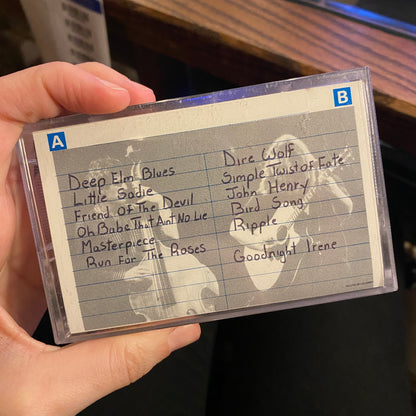 A
Deep Elm Blues
Little Sadie
Friend Of The Devil
Oh Babe That Aint No Lie
Masterpiece
Run For The Roses
B
Dire Wolf
Simple Twist of Fate
John Henry
Bird Song
Ripple
Goodnight Irene